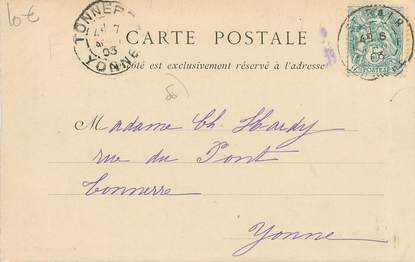 10-€
TONNERRE
7
03
YONNE
CARTE POSTALE
Ce côté est exclusivement réservé à l'adresse
6
03
5
POSTES
Madame Ch. Hardy
rue du Pont
Tonnerre
Yonne